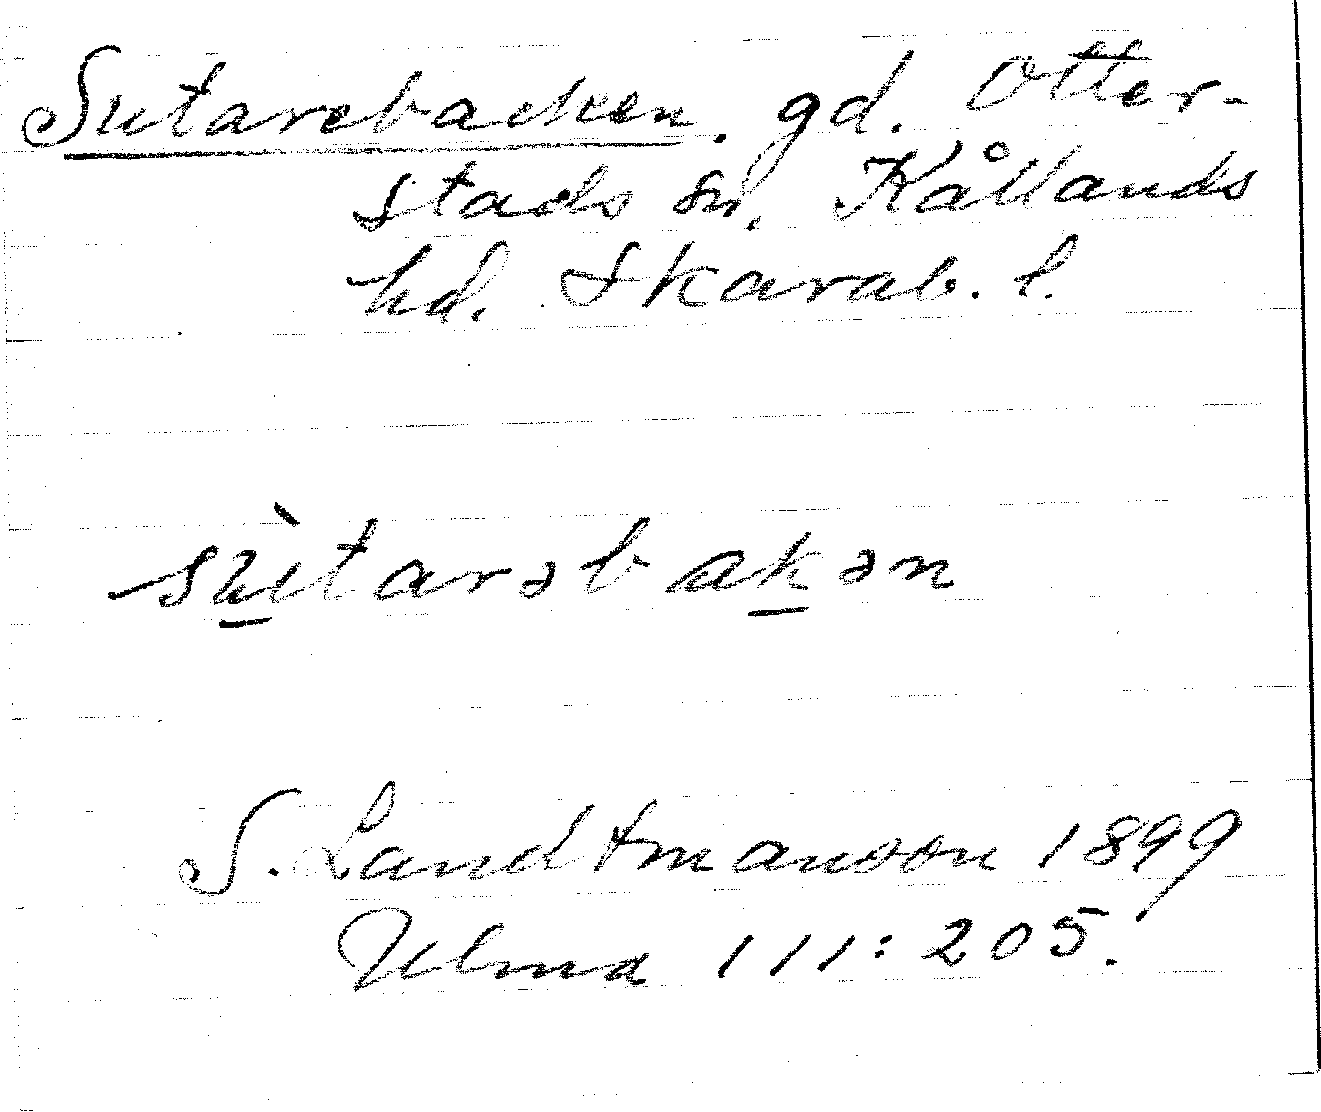 Sutarebacken. gd. Otter-
stads sn. Kållands
hd. Skarab. l.
sù̲tarəbak̲ən
S. Landtmanson 1899
Ulma 111:205.